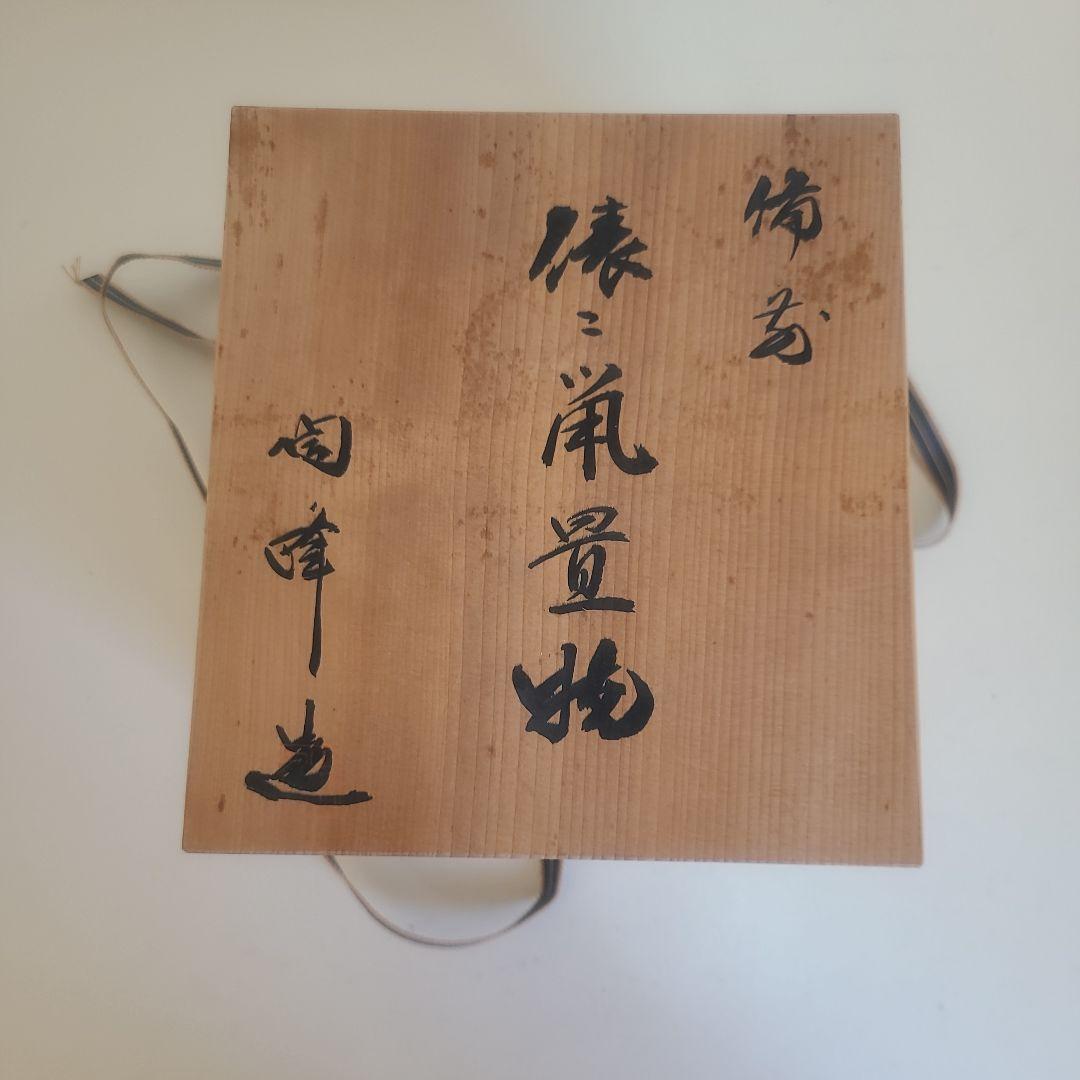 備前
俵ニ鼠置物
陶峰造